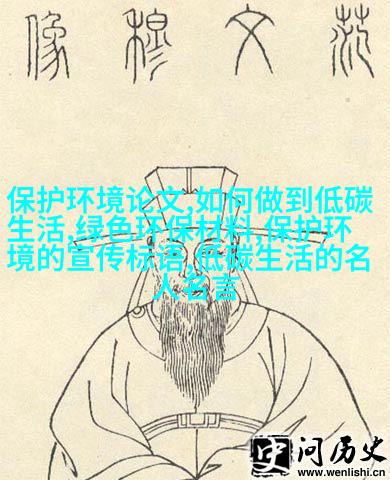 范文穆像
保护环境论文,如何做到低碳
生活,绿色环保材料,保护环
境的宣传标语,低碳生活的名
人名言
史问历史
www.wenlishi.cn